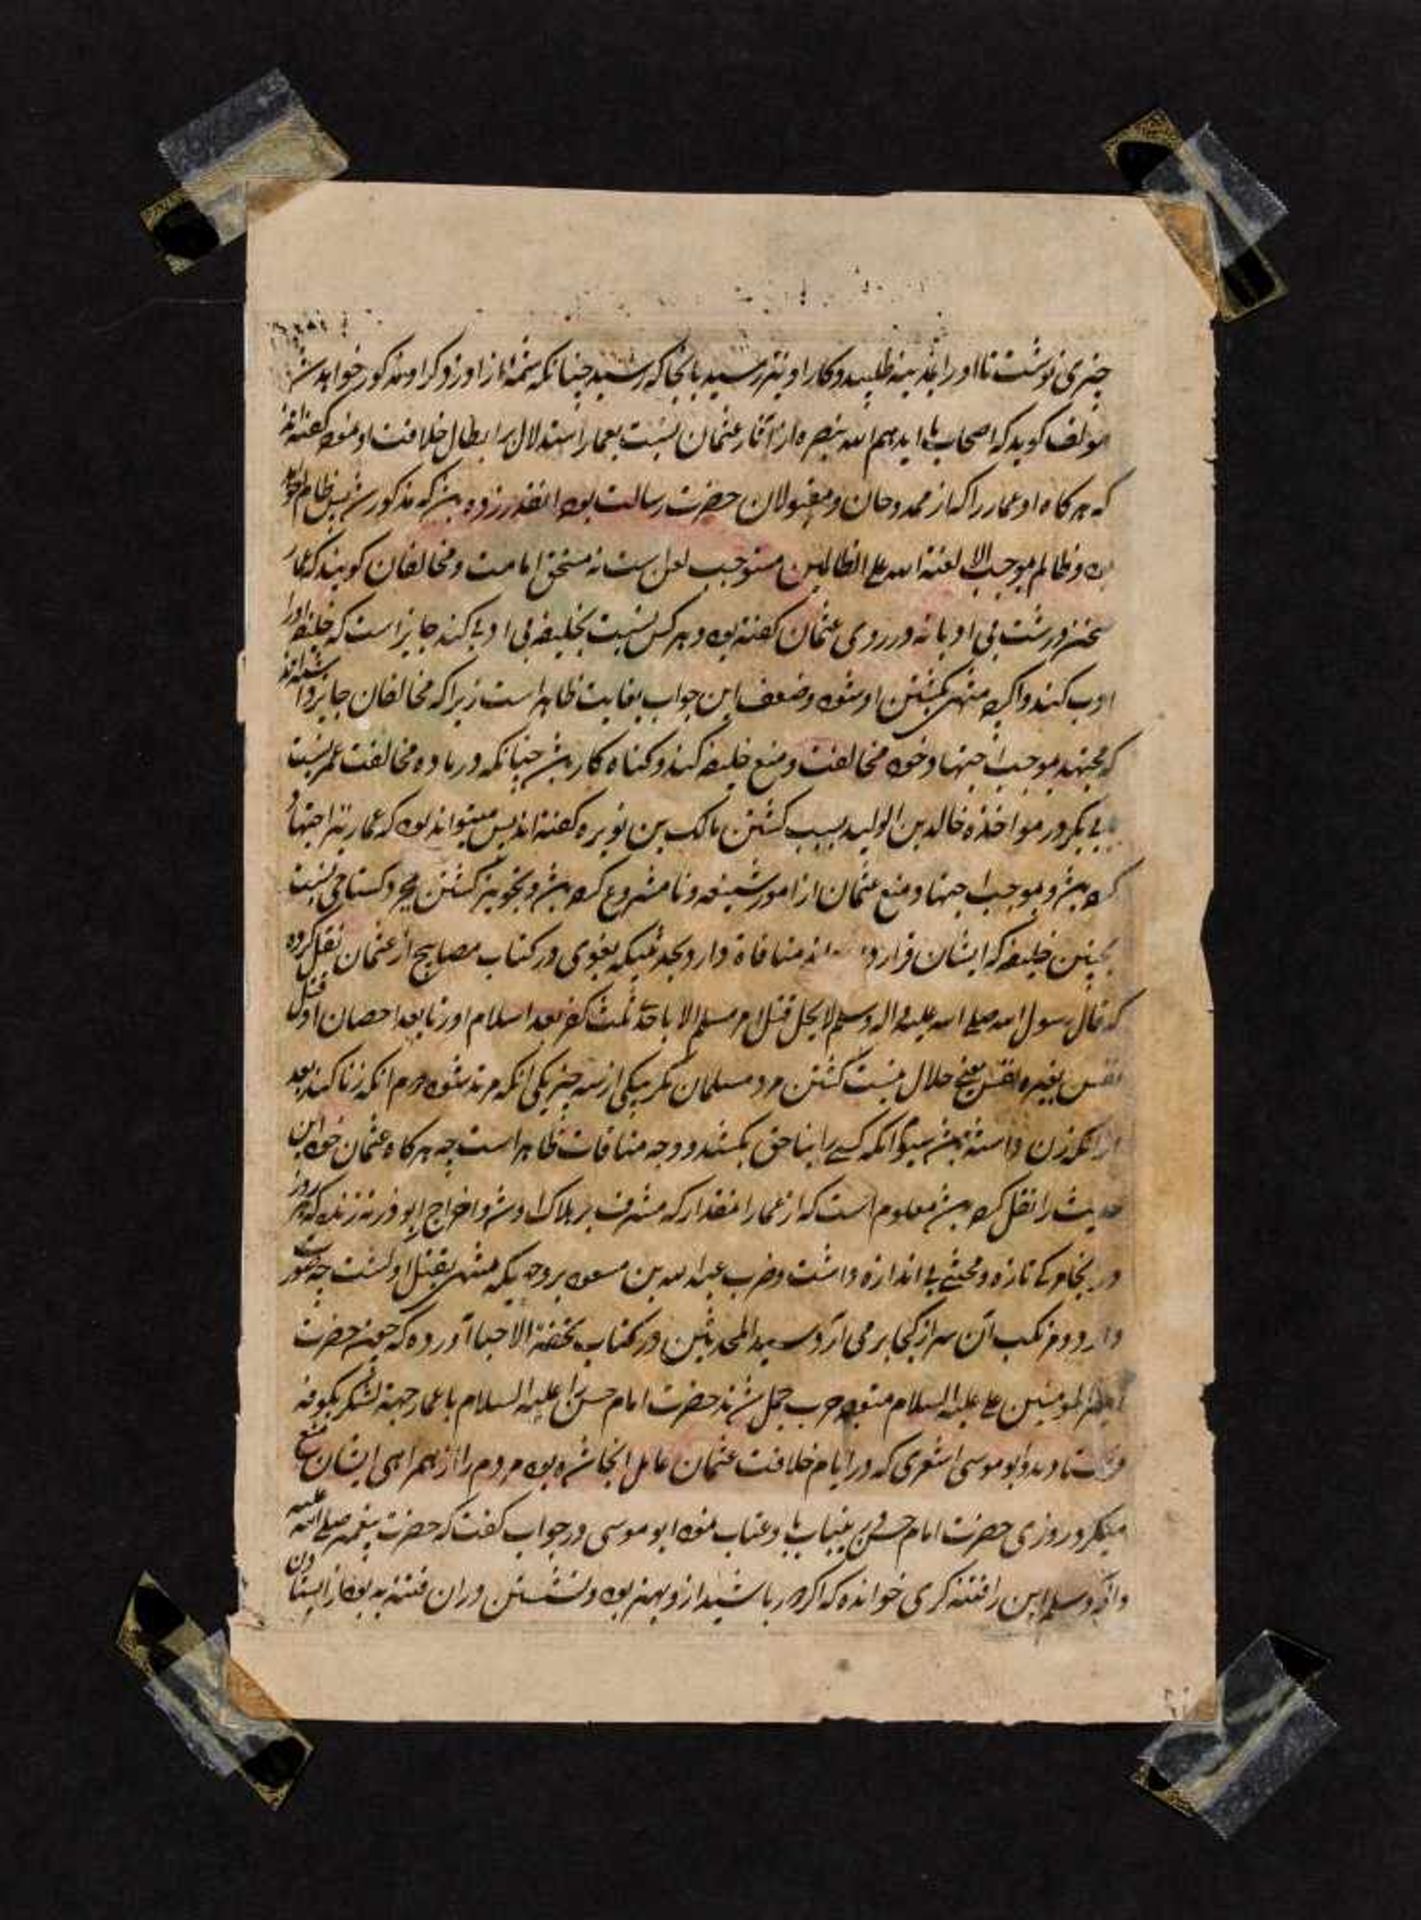 چیزی نوشت تا او را بمدینه طلبید و کار او نیز رسید بانجا که رسید چنانکه شمهٔ از او در ذکر او مذکور خواهد شد
مولف گوید که اصحاب ما ایدهم الله بنصره از آثار عثمان نسبت بعمار استدلال بر ابطال خلافت او نموده گفته‌اند
که هر گاه او عمار را که از ممدوحان و مقبولان حضرت رسالت بوده انقدر زده باشد که مذکور شد پس ظالم خواهد
بود و ظالم بموجب الا لعنة الله علی الظالمین مستوجب لعن است نه مستحق امامت و مخالفان گویند که عمار
سخن درشت بی ادبانه در روی عثمان گفته بوده و هر کس نسبت بخلیفه بی ادبی کند جایز است که خلیفه او را
ادب کند و اگر چه منتهی بکشتن او شود و ضعف این جواب بغایت ظاهر است زیرا که مخالفان جایز داشته‌اند
که مجتهد بموجب اجتهاد خود مخالفت و منع خلیفه کند و گناه کار نباشد چنانکه در ماده مخالفت عمر نسبت
بابی بکر در مواخذه خالد بن الولید بسبب کشتن مالک بن نویره گفته اند پس میتواند بود که عمار نیز اجتهاد
کرده باشد و بموجب اجتهاد منع عثمان از امور شنیعه و نامشروع کرده باشد و تجویز کشتن و گستاخی نسبت
بچنین خلیفه که ایشان قرار داده‌اند منافاة دارد بحدیثیکه بغوی در کتاب مصابیح از عثمان نقل کرده
که قال رسول الله صلی الله علیه و اله و سلم لا یحل قتل امرء مسلم الا باحدی ثلث کفر بعد اسلام او زنا بعد احصان او قتل
نفس بغیر نفس یعنی حلال نیست کشتن مرد مسلمان مگر بیکی از سه چیز یکی انکه مرتد شود دوم انکه زنا کند بعد
از انکه زن داشته باشد سیوم انکه کسی را بناحق بکشد و وجه منافات ظاهر است چه هر گاه عثمان خود این
حدیث را نقل کرده باشد معلوم است که از عمار انقدار که مشرف بر هلاک او شد و اخراج ابوذر نه زنده که هر روز
در بنجام کی تازه و محبتی بی اندازه داشت و ضرب عبد الله بن مسعود بر وجهیکه منتهی بقتل او گشت چه صورت
دارد و مرتکب آن سر از کجا بر می آرد و سید المحدثین در کتاب تحفة الاحبا آورده که چون حضرت
امیر المومنین علی علیه السلام متوجه حرب جمل شدند حضرت امام حسن علیه السلام با عمار جهة لشکر بکوفه
فرستادند و ابو موسی اشعری که در ایام خلافت عثمان عامل انجا شده بود مردم را از همراهی ایشان منع
میکرد روزی حضرت امام حسن در بابا و عتاب نمود ابو موسی در جواب گفت که حضرت پیغمبر صلی الله علیه
و آله و سلم این را فتنهٔ کری خوانده که اگر در باشید از و بهتر بود و نشستن در ان فتنه به بود از ایستادن